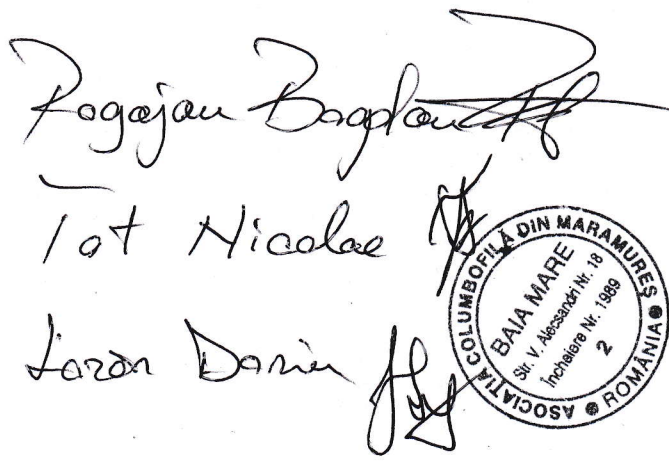 Rogojan Bogdan
Tat Nicolae
Lazar Darius
ASOCIAȚIA COLUMBOFILĂ DIN MARAMUREȘ
ROMÂNIA
BAIA MARE
Str. V. Alecsandri Nr. 18
Încheiere Nr. 1989
2